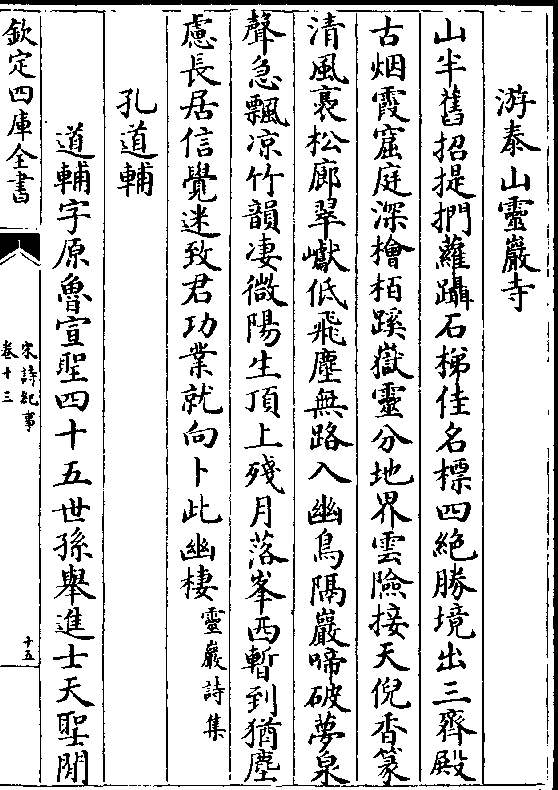 游泰山靈巖寺
山半舊招提捫蘿躡石梯佳名標四絶勝境出三齊殿
古烟霞窟庭深檜栢蹊嶽靈分地界雲險接天倪香篆
清風裊松廊翠巘低飛塵無路入幽鳥隔巖啼破夢泉
聲急飄凉竹韻凄微陽生頂上殘月落峯西暫到猶塵
慮長居信覺迷致君功業就向卜此幽棲靈巖詩集
孔道輔
道輔字原魯宣聖四十五世孫舉進士天聖間
欽定四庫全書
宋詩紀事
卷十三
十五